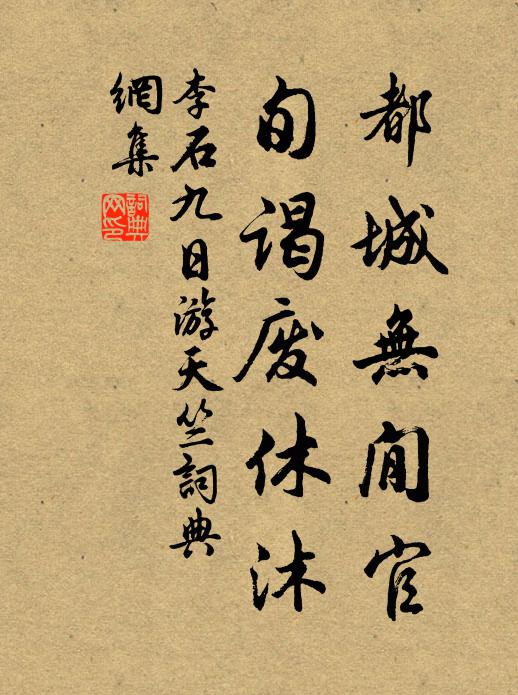 都城無閒官
旬謁废休沐
李石九日游天竺詞典
網集
詞典網印